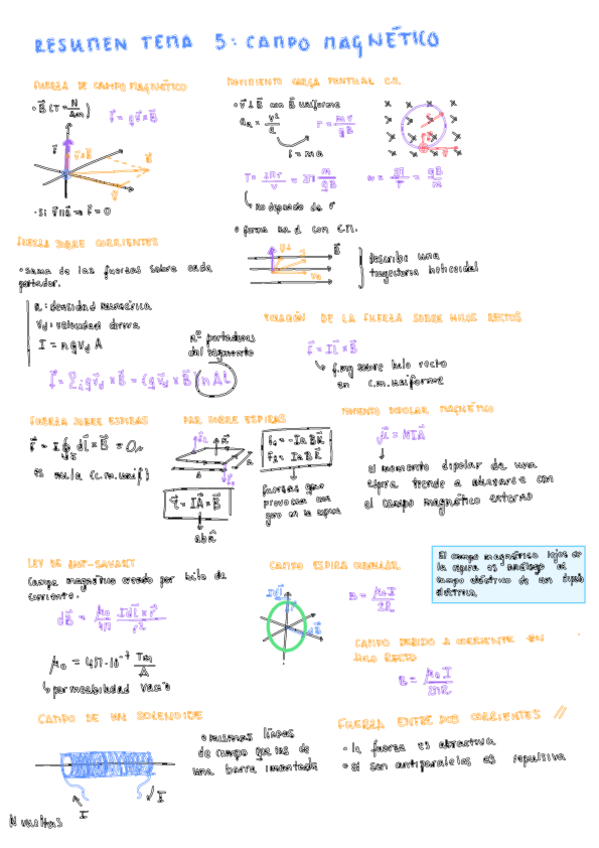 RESUMEN TEMA 5: CAMPO MAGNÉTICO
FUERZA DE CAMPO MAGNÉTICO
• B⃗ (T = N/Am)
F⃗ = q v⃗ × B⃗
• Si v⃗ ∥ B⃗ ⇒ F⃗ = 0
MOVIMIENTO CARGA PUNTUAL C.M.
• v⃗ ⊥ B⃗ con B⃗ uniforme
r = mv/qB
F = ma
T = 2πr/v = 2π m/qB
ω = 2π/T = qB/m
no depende de v
• forma un α con C.M.
B⃗
Describe una
trayectoria helicoidal
FUERZA SOBRE CORRIENTES
• suma de las fuerzas sobre cada
portador.
n: densidad numérica
Vd: velocidad deriva
I = nqvd A
nº portadores
del segmento
F⃗ = Σi q v⃗d × B⃗ = (q v⃗d × B⃗)(nAL)
DE LA FUERZA SOBRE HILOS RECTOS
F⃗ = I L⃗ × B⃗
f.mg sobre hilo recto
en c.m. uniforme
FUERZA SOBRE ESPIRAS
F⃗ = I ∮ dL⃗ × B⃗ = 0
es nula (c.m. unif)
PAR SOBRE ESPIRAS
τ⃗ = I A⃗ × B⃗
fuerzas que
provocan un
giro en la espira
MOMENTO DIPOLAR MAGNÉTICO
μ⃗ = NIA⃗
el momento dipolar de una
espira tiende a alinearse con
el campo magnético externo
LEY DE BIOT-SAVART
Campo magnético creado por hilo de
corriente.
dB⃗ = μ₀/4π I dL⃗ × r⃗/r²
μ₀ = 4π·10⁻⁷ Tm/A
permeabilidad vacío
CAMPO ESPIRA CIRCULAR
I dL⃗
dB⃗
B = μ₀I/2R
El campo magnético lejos de
la espira es análogo al
campo eléctrico de un dipolo
eléctrico
CAMPO DEBIDO A CORRIENTE EN
HILO RECTO
B = μ₀I/2πR
CAMPO DE UN SOLENOIDE
• mismas líneas
de campo que las de
una barra imantada
I
I
N vueltas
FUERZA ENTRE DOS CORRIENTES //
• la fuerza es atractiva
• si son antiparalelas es repulsiva